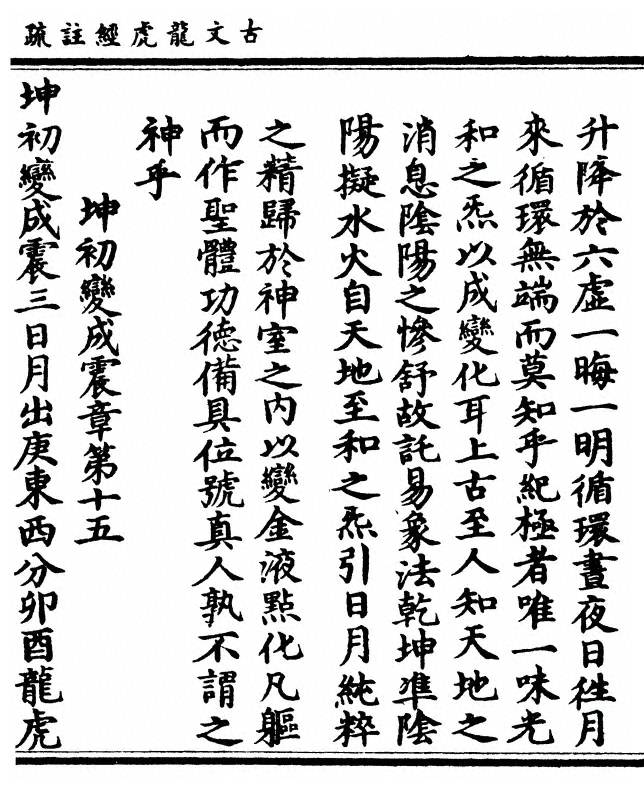 古文龍虎經註疏
升降於六虛一晦一明循環晝夜日徃月
來循環無端而莫知乎紀極者唯一味光
和之炁以成變化耳上古至人知天地之
消息陰陽之慘舒故託易象法乾坤準陰
陽擬水火自天地至和之炁引日月純粹
之精歸於神室之内以變金液點化凡軀
而作聖體功德備具位號真人孰不謂之
神乎
坤初變成震章第十五
坤初變成震三日月出庚東西分卯酉龍虎